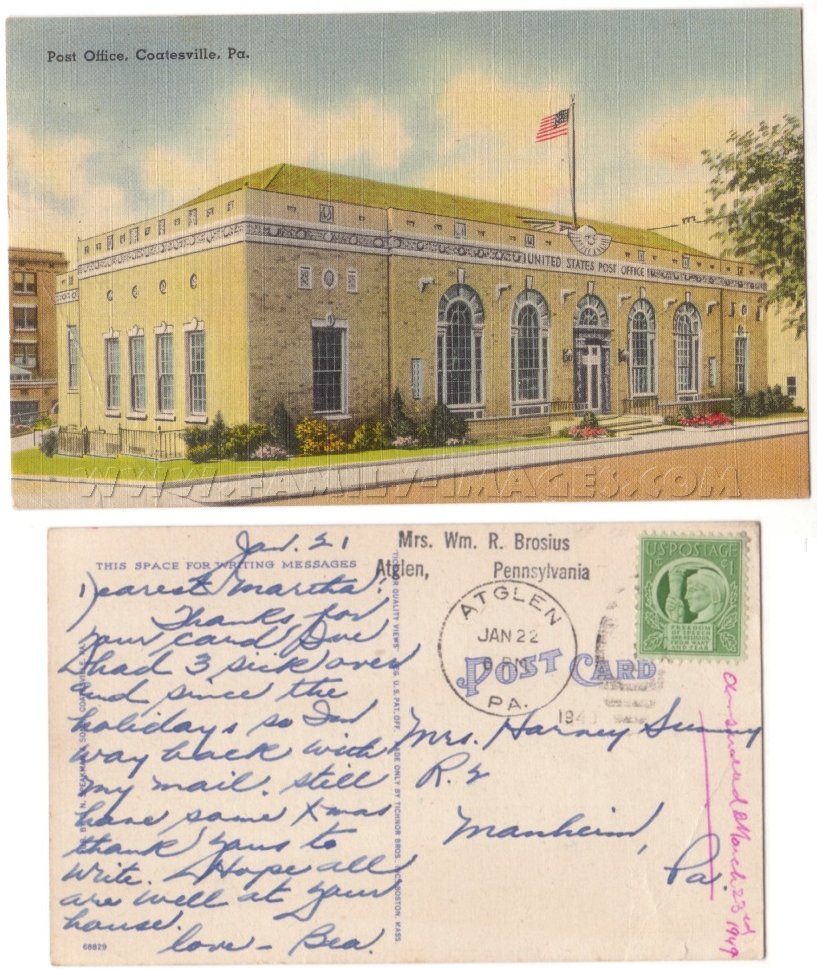 Post Office, Coatesville, Pa.
UNITED STATES POST OFFICE
WWW.FAMILY-IMAGES.COM
Jan. 21
THIS SPACE FOR WRITING MESSAGES
Dearest Martha:
Thanks for
your card Sue
had 3 sick over
and since the
holidays so I'm
way back with
my mail. Still
have some Xmas
thank yous to
write. Hope all
are well at your
house.
love - Bea.
68829
TICHNOR QUALITY VIEWS REG. U. S. PAT. OFF. MADE ONLY BY TICHNOR BROS. INC. BOSTON, MASS.
Mrs. Wm. R. Brosius
Atglen, Pennsylvania
ATGLEN
JAN 22
PM
PA.
194
POST CARD
U.S. POSTAGE
1¢ ¢1
FREEDOM
OF SPEECH
AND RELIGION,
FROM WANT
AND FEAR
Mrs. Harvey
R. 2
Manheim,
Pa.
answered March 23rd 1949